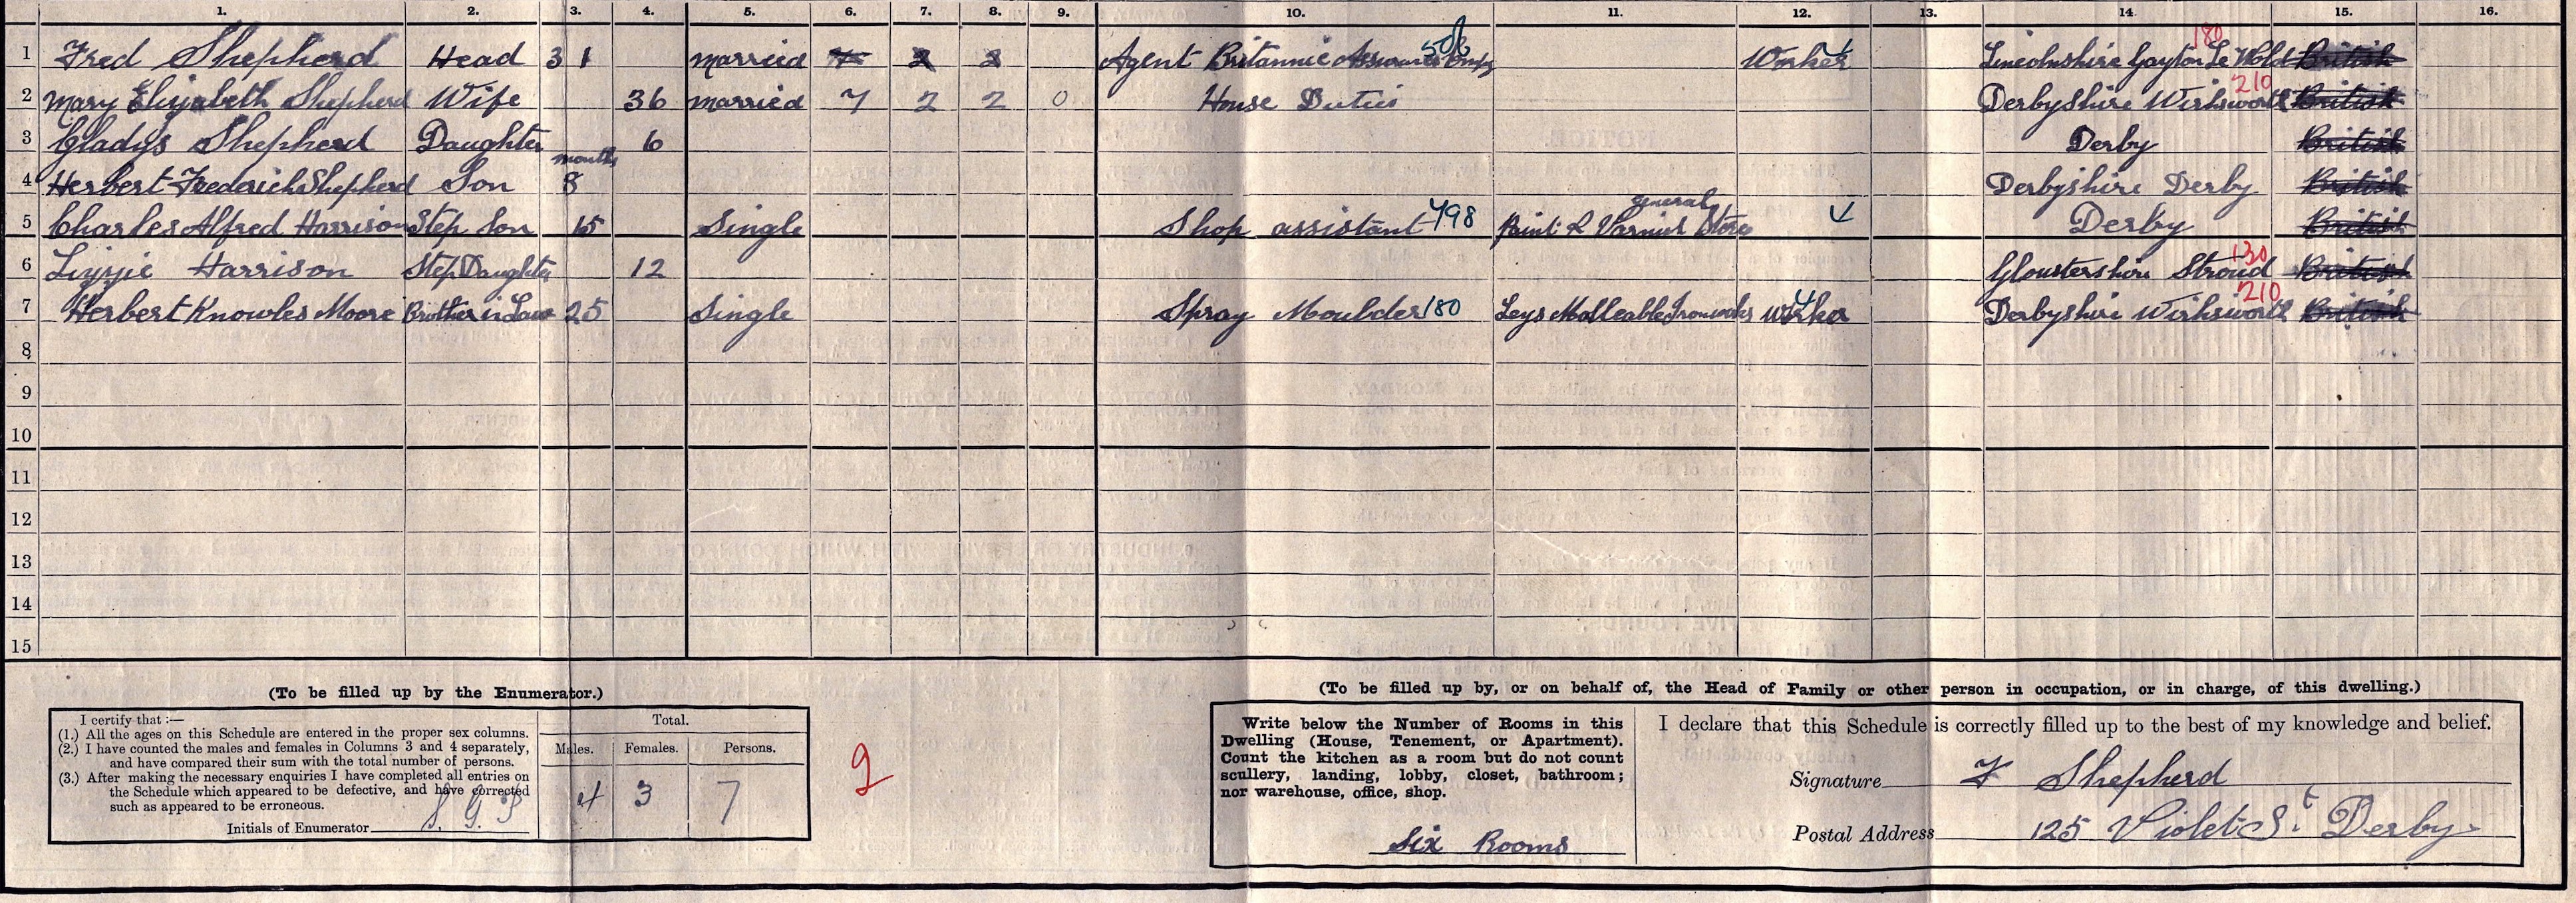 1. 2. 3. 4. 5. 6. 7. 8. 9. 10. 11. 12. 13. 14. 15. 16.
1 Fred Shepherd Head 31 married 7 2 2 Agent Britannic Assurance Compy 506 Worker 4 Lincolnshire Gayton Le Wold 180 British
2 Mary Elizabeth Shepherd Wife 36 married 7 2 2 0 House Duties Derbyshire Wirksworth 210 British
3 Gladys Shepherd Daughter 6 Derby British
4 Herbert Frederick Shepherd Son months 8 Derbyshire Derby British
5 Charles Alfred Harrison Step Son 15 Single Shop assistant 498 Paint & Varnish general Stores 4 Derby British
6 Lizzie Harrison Step Daughter 12 Gloustershire Stroud 130 British
7 Herbert Knowles Moore Brother in Law 25 Single Spray Moulder 180 Leys Malleable Ironworks Worker 4 Derbyshire Wirksworth 210 British
8
9
10
11
12
13
14
15
(To be filled up by the Enumerator.)
I certify that :—
(1.) All the ages on this Schedule are entered in the proper sex columns.
(2.) I have counted the males and females in Columns 3 and 4 separately,
and have compared their sum with the total number of persons.
(3.) After making the necessary enquiries I have completed all entries on
the Schedule which appeared to be defective, and have corrected
such as appeared to be erroneous.
Initials of Enumerator
Total.
Males. Females. Persons.
4 3 7
2
(To be filled up by, or on behalf of, the Head of Family or other person in occupation, or in charge, of this dwelling.)
Write below the Number of Rooms in this
Dwelling (House, Tenement, or Apartment).
Count the kitchen as a room but do not count
scullery, landing, lobby, closet, bathroom;
nor warehouse, office, shop.
Six Rooms
I declare that this Schedule is correctly filled up to the best of my knowledge and belief.
Signature F Shepherd
Postal Address 125 Violet St Derby